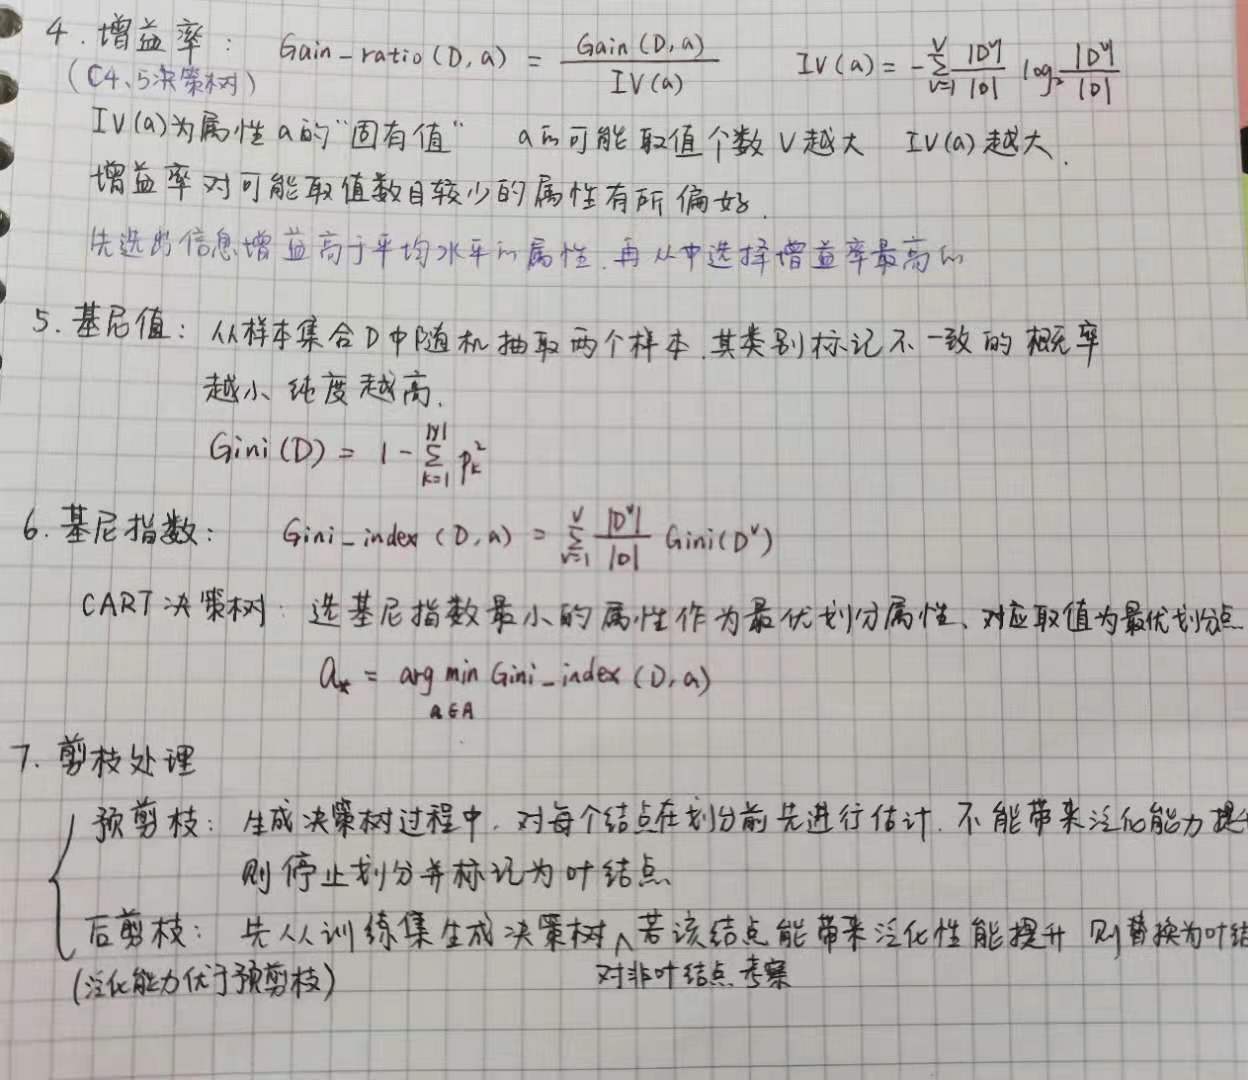 4. 增益率: Gain_ratio(D,a) = Gain(D,a) / IV(a)    IV(a) = -∑_{v=1}^{V} |D^v|/|D| log₂ |D^v|/|D|
(C4.5决策树)
IV(a)为属性a的"固有值"    a的可能取值个数V越大    IV(a)越大.
增益率对可能取值数目较少的属性有所偏好.
先选出信息增益高于平均水平的属性.再从中选择增益率最高的
5. 基尼值: 从样本集合D中随机抽取两个样本.其类别标记不一致的概率
越小、纯度越高.
Gini(D) = 1-∑_{k=1}^{|y|} p_k^2
6. 基尼指数: Gini_index(D,a) = ∑_{v=1}^{V} |D^v|/|D| Gini(D^v)
CART决策树: 选基尼指数最小的属性作为最优划分属性、对应取值为最优划分点
a_* = arg min_{a∈A} Gini_index(D,a)
7. 剪枝处理
预剪枝: 生成决策树过程中.对每个结点在划分前先进行估计.不能带来泛化能力提升
则停止划分并标记为叶结点
后剪枝: 先从训练集生成决策树∧若该结点能带来泛化性能提升 则替换为叶结
(泛化能力优于预剪枝)    对非叶结点考察